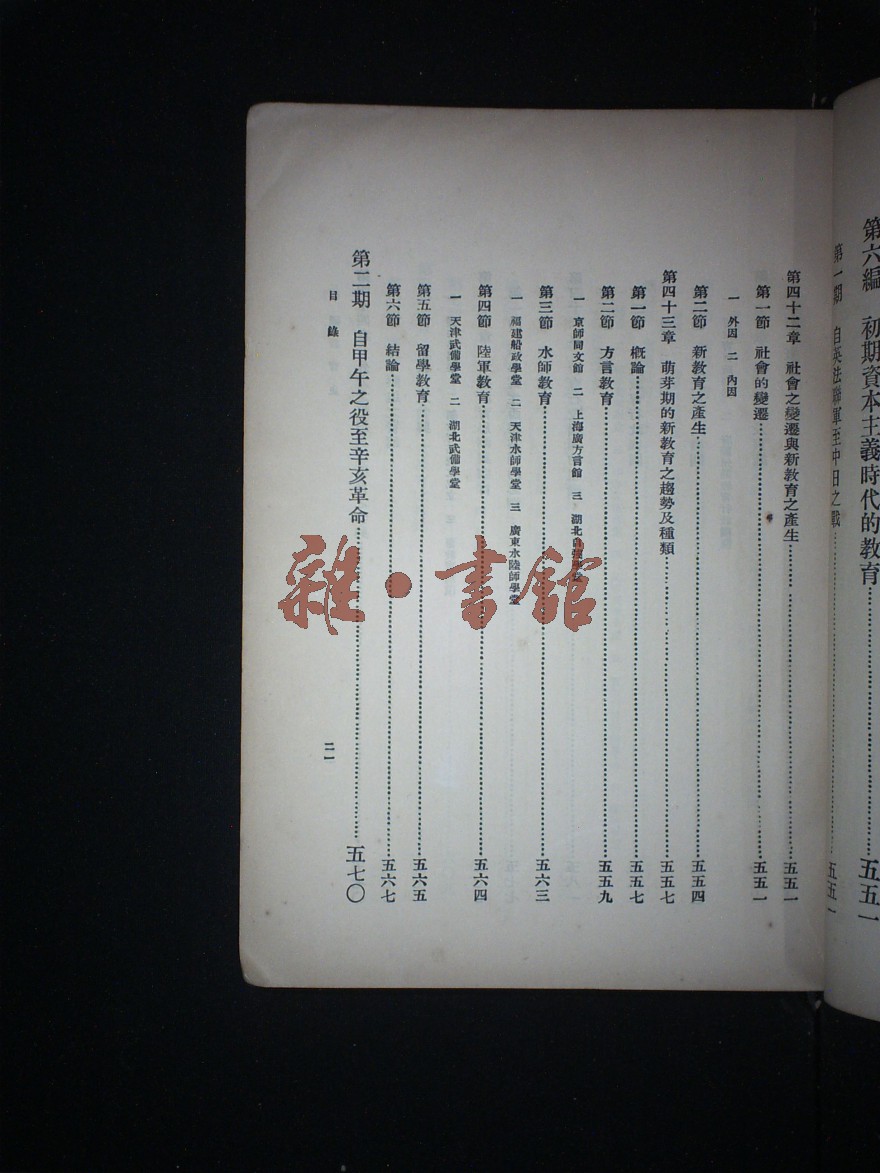 第六編 初期資本主義時代的教育……五五一
第一期 自英法聯軍至中日之戰……五五一
第四十二章 社會之變遷與新教育之產生……五五一
第一節 社會的變遷……五五一
一 外因 二 內因
第二節 新教育之產生……五五四
第四十三章 萌芽期的新教育之趨勢及種類……五五七
第一節 槪論……五五七
第二節 方言教育……五五九
一 京師同文館 二 上海廣方言館 三 湖北自強學堂
第三節 水師教育……五六三
一 福建船政學堂 二 天津水師學堂 三 廣東水陸師學堂
第四節 陸軍教育……五六四
一 天津武備學堂 二 湖北武備學堂
第五節 留學教育……五六五
第六節 結論……五六七
第二期 自甲午之役至辛亥革命……五七〇
目錄
二一
雜·書館